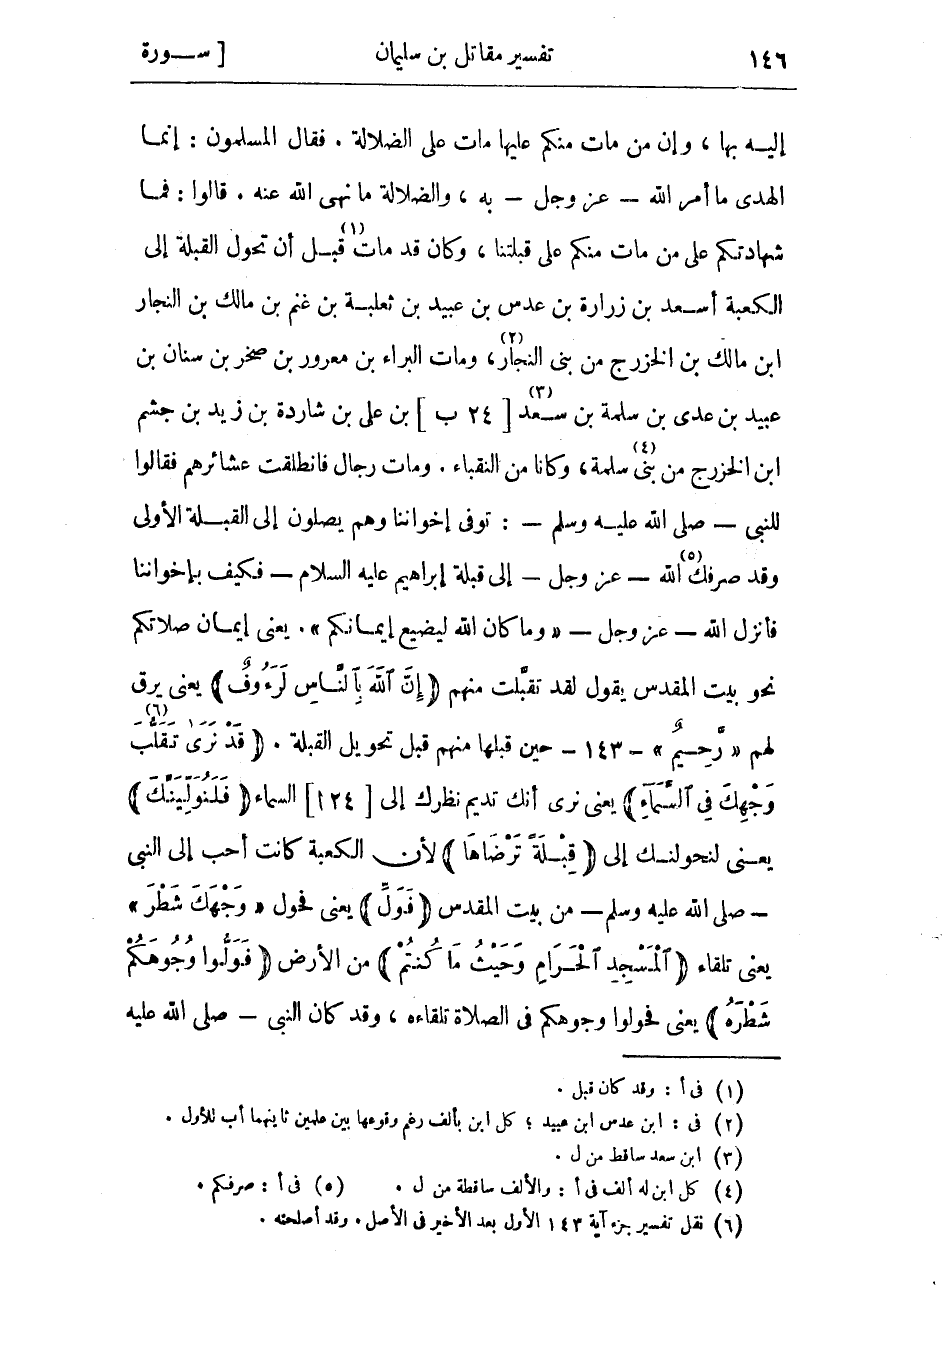 ١٤٦ تفسير مقاتل بن سليمان [ ســـورة
إليــه بها ، وإن من مات منكم عليها مات على الضلالة . فقال المسلمون : إنمـا
الهدى ما أمر الله – عز وجل – به ، والضلالة ما نهى الله عنه . قالوا : فمـا
شهادتكم على من مات منكم على قبلتنا ، وكان قد مات (١) قبـل أن تحول القبلة إلى
الكعبة أسـعد بن زرارة بن عدس بن عبيد بن ثعلبـة بن غنم بن مالك بن النجار
ابن مالك بن الخزرج من بنى النجار (٢) ، ومات البراء بن معرور بن صخر بن سنان بن
عبيد بن عدى بن سلمة بن سـعد (٣) [ ٢٤ ب ] بن على بن شاردة بن زيد بن جشم
ابن الخزرج من بنى (٤) سلمة ، وكانا من النقباء . ومات رجال فانطلقت عشائرهم فقالوا
للنبى – صلى الله عليـه وسلم – : توفى إخواننا وهم يصلون إلى القبـلة الأولى
وقد صرفك (٥) الله – عز وجل – إلى قبلة إبراهيم عليه السلام – فكيف بإخواننا
فأنزل الله – عز وجل – « وما كان الله ليضيع إيمـانكم » . يعنى إيمـان صلاتكم
نحو بيت المقدس يقول لقد تقبلت منهم ﴿ إِنَّ ٱللَّهَ بِٱلنَّاسِ لَرَءُوفٌ ﴾ يعنى يرق
لهم « رَّحِيمٌ » – ١٤٣ – حين قبلها منهم قبل تحويل القبلة . ﴿ قَدْ نَرَىٰ تَقَلُّبَ (٦)
وَجْهِكَ فِى ٱلسَّمَآءِ ﴾ يعنى نرى أنك تديم نظرك إلى [ ١٢٤ ] السماء ﴿ فَلَنُوَلِّيَنَّكَ ﴾
يعـنى لنحولنـك إلى ﴿ قِبْلَةً تَرْضَاهَا ﴾ لأن الكعبة كانت أحب إلى النبى
– صلى الله عليه وسلم – من بيت المقدس ﴿ فَوَلِّ ﴾ يعنى فحول « وَجْهَكَ شَطْرَ »
يعنى تلقاء ﴿ ٱلْمَسْجِدِ ٱلْحَرَامِ وَحَيْثُ مَا كُنتُمْ ﴾ من الأرض ﴿ فَوَلُّوا وُجُوهَكُمْ
شَطْرَهُ ﴾ يعنى فحولوا وجوهكم فى الصلاة تلقاءه ، وقد كان النبى – صلى الله عليه
(١) فى أ : وقد كان قبل .
(٢) فى : ابن عدس ابن عبيد ؛ كل ابن بألف رغم وقوعها بين علمين ثانيهما أب للأول .
(٣) ابن سعد ساقط من ل .
(٤) كل ابن له ألف فى أ : والألف ساقطة من ل . (٥) فى أ : صرفكم .
(٦) نقل تفسير جزء آية ١٤٣ الأول بعد الأخير فى الأصل . وقد أصلحته .